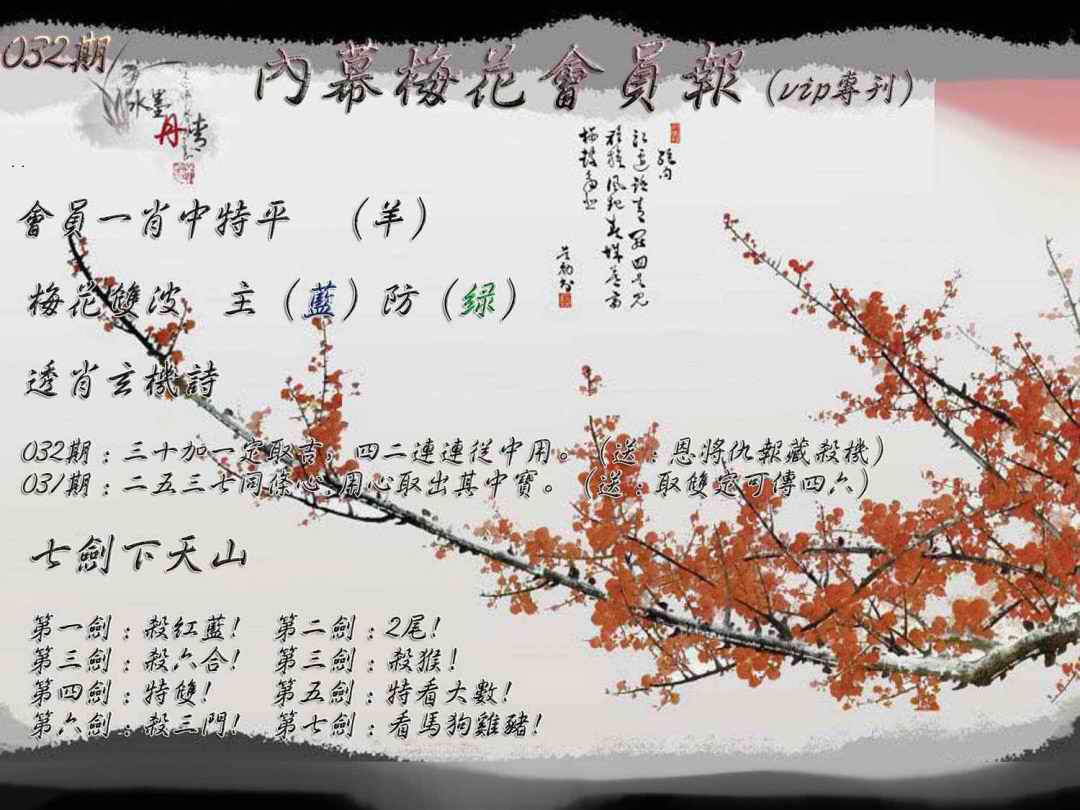 032期
內幕梅花會員報(vip專刊)
水墨
丹青
會員一肖中特平 （羊）
梅花雙波 主（藍）防（绿）
透肖玄機詩
032期：三十加一定取吉；四二連連從中用。（送：恩將仇報藏殺機）
031期：二五三七同條心,用心取出其中寶。（送：取雙定可傳四六）
七劍下天山
第一劍：殺紅藍! 第二劍：2尾!
第三劍：殺六合! 第三劍：殺猴!
第四劍：特雙! 第五劍：特看大數!
第六劍：殺三門! 第七劍：看馬狗雞豬!